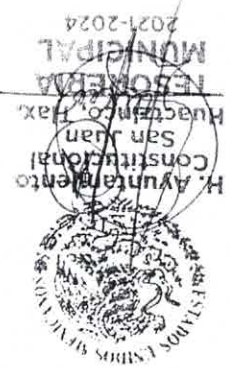 ESTADOS UNIDOS MEXICANOS
H. Ayuntamiento
Constitucional
San Juan
Huactzinco, Tlax.
TESORERIA
MUNICIPAL
2021-2024